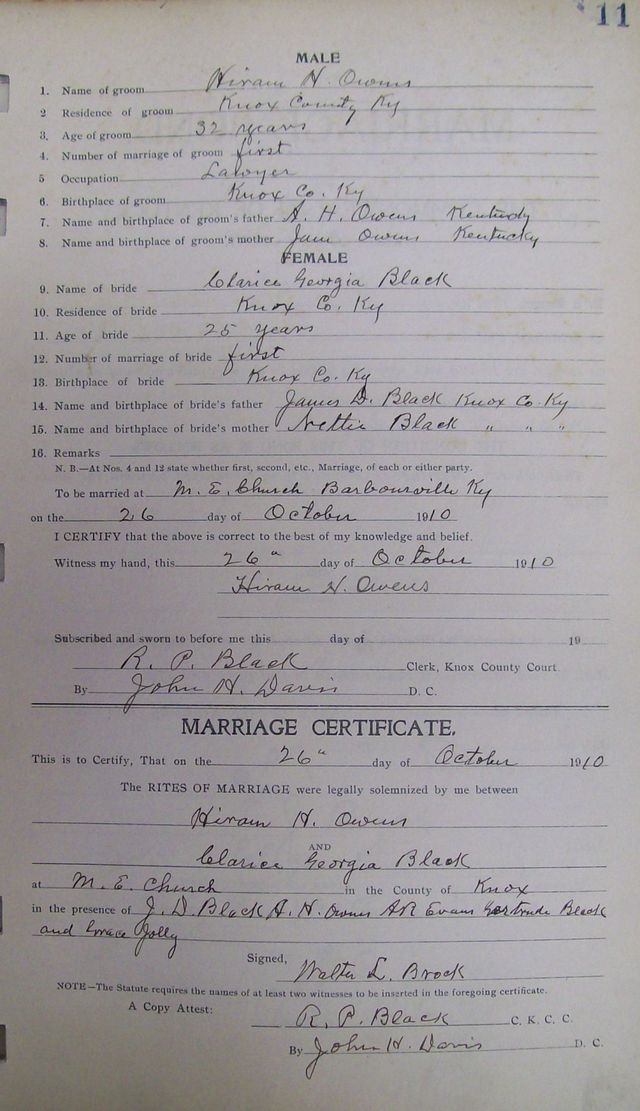 11
MALE
1. Name of groom Hiram H. Owens
2 Residence of groom Knox County Ky
3. Age of groom 32 years
4. Number of marriage of groom first
5 Occupation Lawyer
6. Birthplace of groom Knox Co. Ky
7. Name and birthplace of groom's father A. H. Owens Kentucky
8. Name and birthplace of groom's mother Jane Owens Kentucky
FEMALE
9. Name of bride Clarice Georgia Black
10. Residence of bride Knox Co. Ky
11. Age of bride 25 years
12. Number of marriage of bride first
13. Birthplace of bride Knox Co. Ky
14. Name and birthplace of bride's father James D. Black Knox Co. Ky
15. Name and birthplace of bride's mother Nettie Black " " "
16. Remarks
N. B.—At Nos. 4 and 12 state whether first, second, etc., Marriage, of each or either party.
To be married at M. E. Church Barbourville Ky
on the 26 day of October 1910
I CERTIFY that the above is correct to the best of my knowledge and belief.
Witness my hand, this 26" day of October 1910
Hiram H. Owens
Subscribed and sworn to before me this day of 19
R. P. Black Clerk, Knox County Court.
By John H. Davis D. C.
MARRIAGE CERTIFICATE.
This is to Certify, That on the 26" day of October 1910
The RITES OF MARRIAGE were legally solemnized by me between
Hiram H. Owens
AND
Clarice Georgia Black
at M. E. Church in the County of Knox
in the presence of J. D. Black A. H. Owens AR Evans Gertrude Black
and Grace Jolly
Signed,
Walter L. Brock
NOTE—The Statute requires the names of at least two witnesses to be inserted in the foregoing certificate.
A Copy Attest:
R. P. Black C. K. C. C.
By John H. Davis D. C.